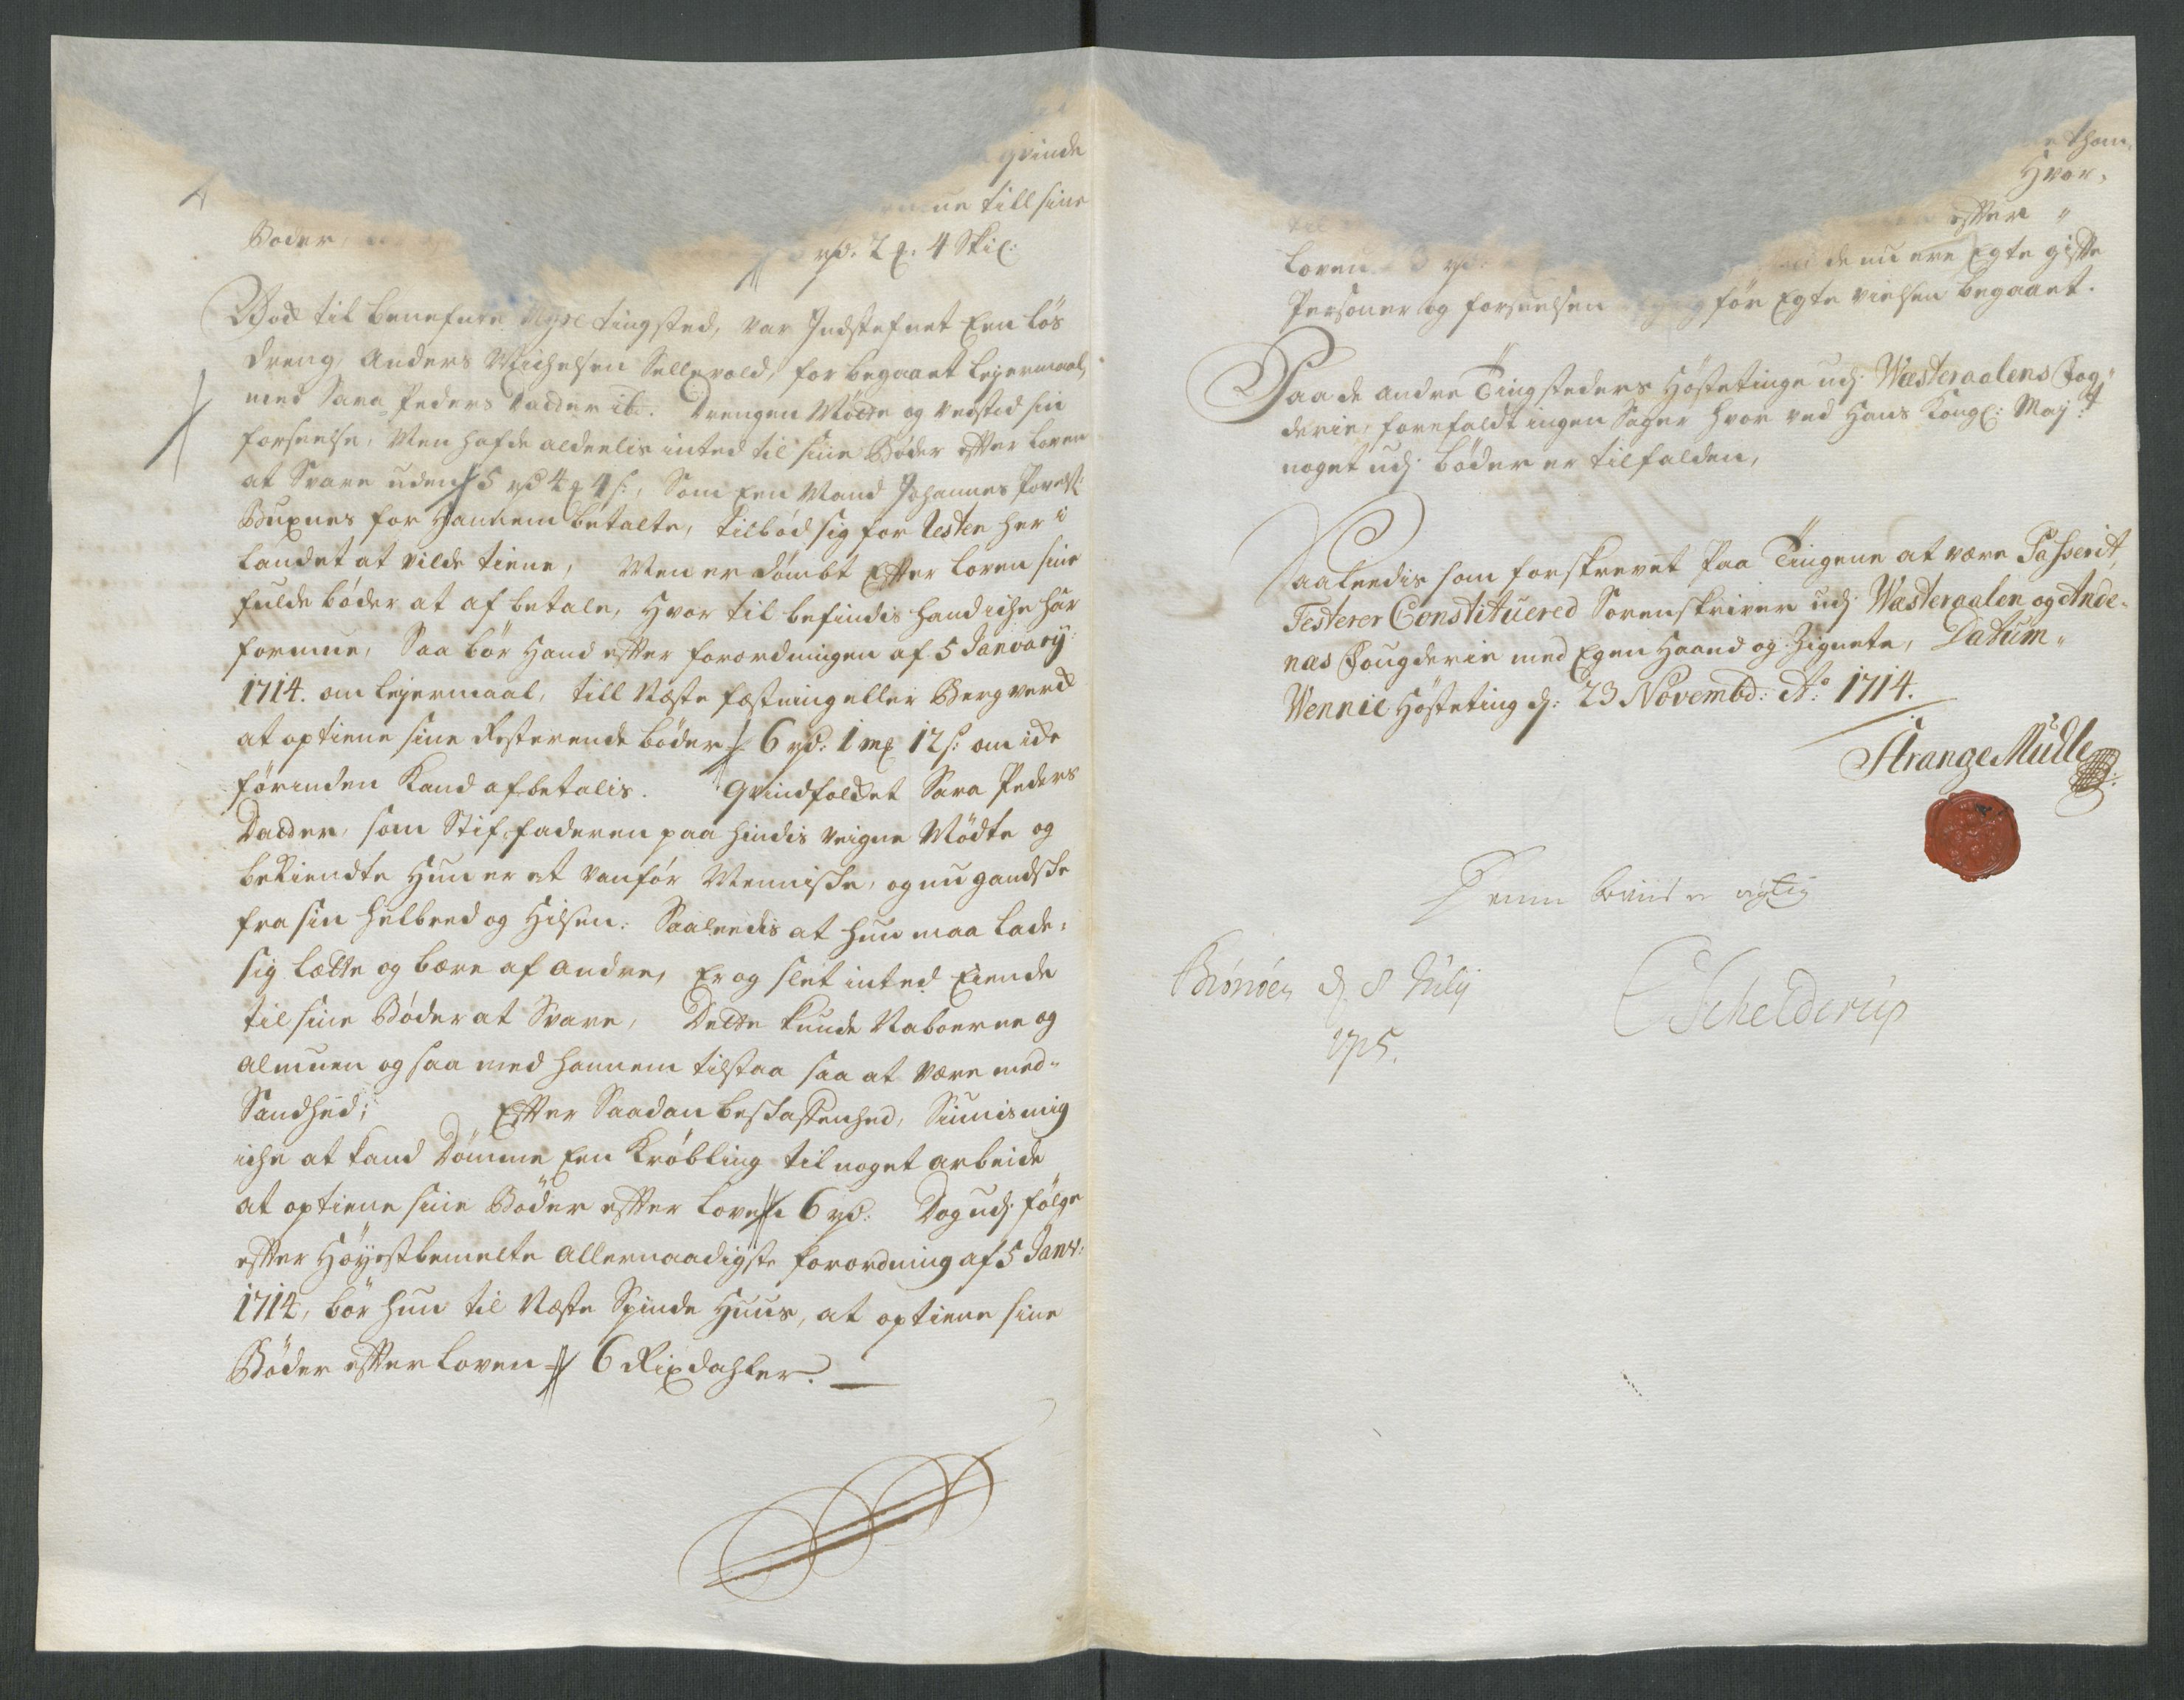 qvinde
ne till sine
Böder,
rd. 2 ₰. 4 Skil:
Ved til benefnte Myre tingsted, var Indstefnet Een lös
dreng Anders Michelsen Sellevold, for begaaet lejermaal,
med Sara Peders Datter ib. Drengen Mödte og vedstod sin
forseelse, Men hafde aldeelis inted til sine Böder effter loven
at Svare uden 5 rd 4 ₰ 4 s:, Som Een Mand Johannes Povels:
Buxnes for Hannem betalte, tilböd sig for Resten her i
landet at vilde tiene, Men er dömbt Effter loven sine
fulde böder at af betale, Hvor til befindis hand iche har
formue, Saa bör Hand effter forordningen af 5 Janvarij
1714. om lejermaal, till Næste fæstning eller Bergverch
at optiene sine Resterende böder 6 rd: 1 mẟ 12 s: om ide
förinden Kand afbetalis. Qvindfolchet Sara Peders
Datter, som Stif-faderen paa hindis veigne Mödte og
beKiendte Hun er et vanför Menniske, og nu gandske
fra sin helbred og Hilsen: Saaleedis at hun maa lade
sig lette og bære af andre, Er og slet inted Eiende
til sine Böder at Svare, Dette kunde Naboerne og
almuen og saa med hannem tilstaa saa at være med
Sandhed; Effter Saadan beskaffenhed, Siunis mig
iche at kand Dömme Een Kröbling til noget arbeide
at optiene sine Böder effter loven 6 rd: Dog udj fölge
effter Höyestbemelte allernaadigste forordning af 5 Janv:
1714, bör hun til Næste Spinde Huus, at optiene sine
Böder effter loven 6 Rixdahler.
Hvor,
til effter
loven rd: de nu ere Egte giffte
Personer og forseelsen för Egte vielsen begaaet.
Paa de andre Tingsteders Höstetinge udj Wæsteraalens Fog
derie, forefaldt ingen Sager hvor ved Hans Kongl: Maj:t
noget udj böder er tilfalden,
Saaleedis som forskrevet Paa Tingene at være Passerit,
Testerer Constituered Sorenskriver udj Wæsteraalen og Ande-
næs Fougderie med Egen Haand og Zignete, Datum
Wennie Hösteting dj: 23 Novembd: Ao 1714.
Strange Mülle
Denne beviis er rigtig
Brönöen dj 8 Julij
1715.
Schelderup